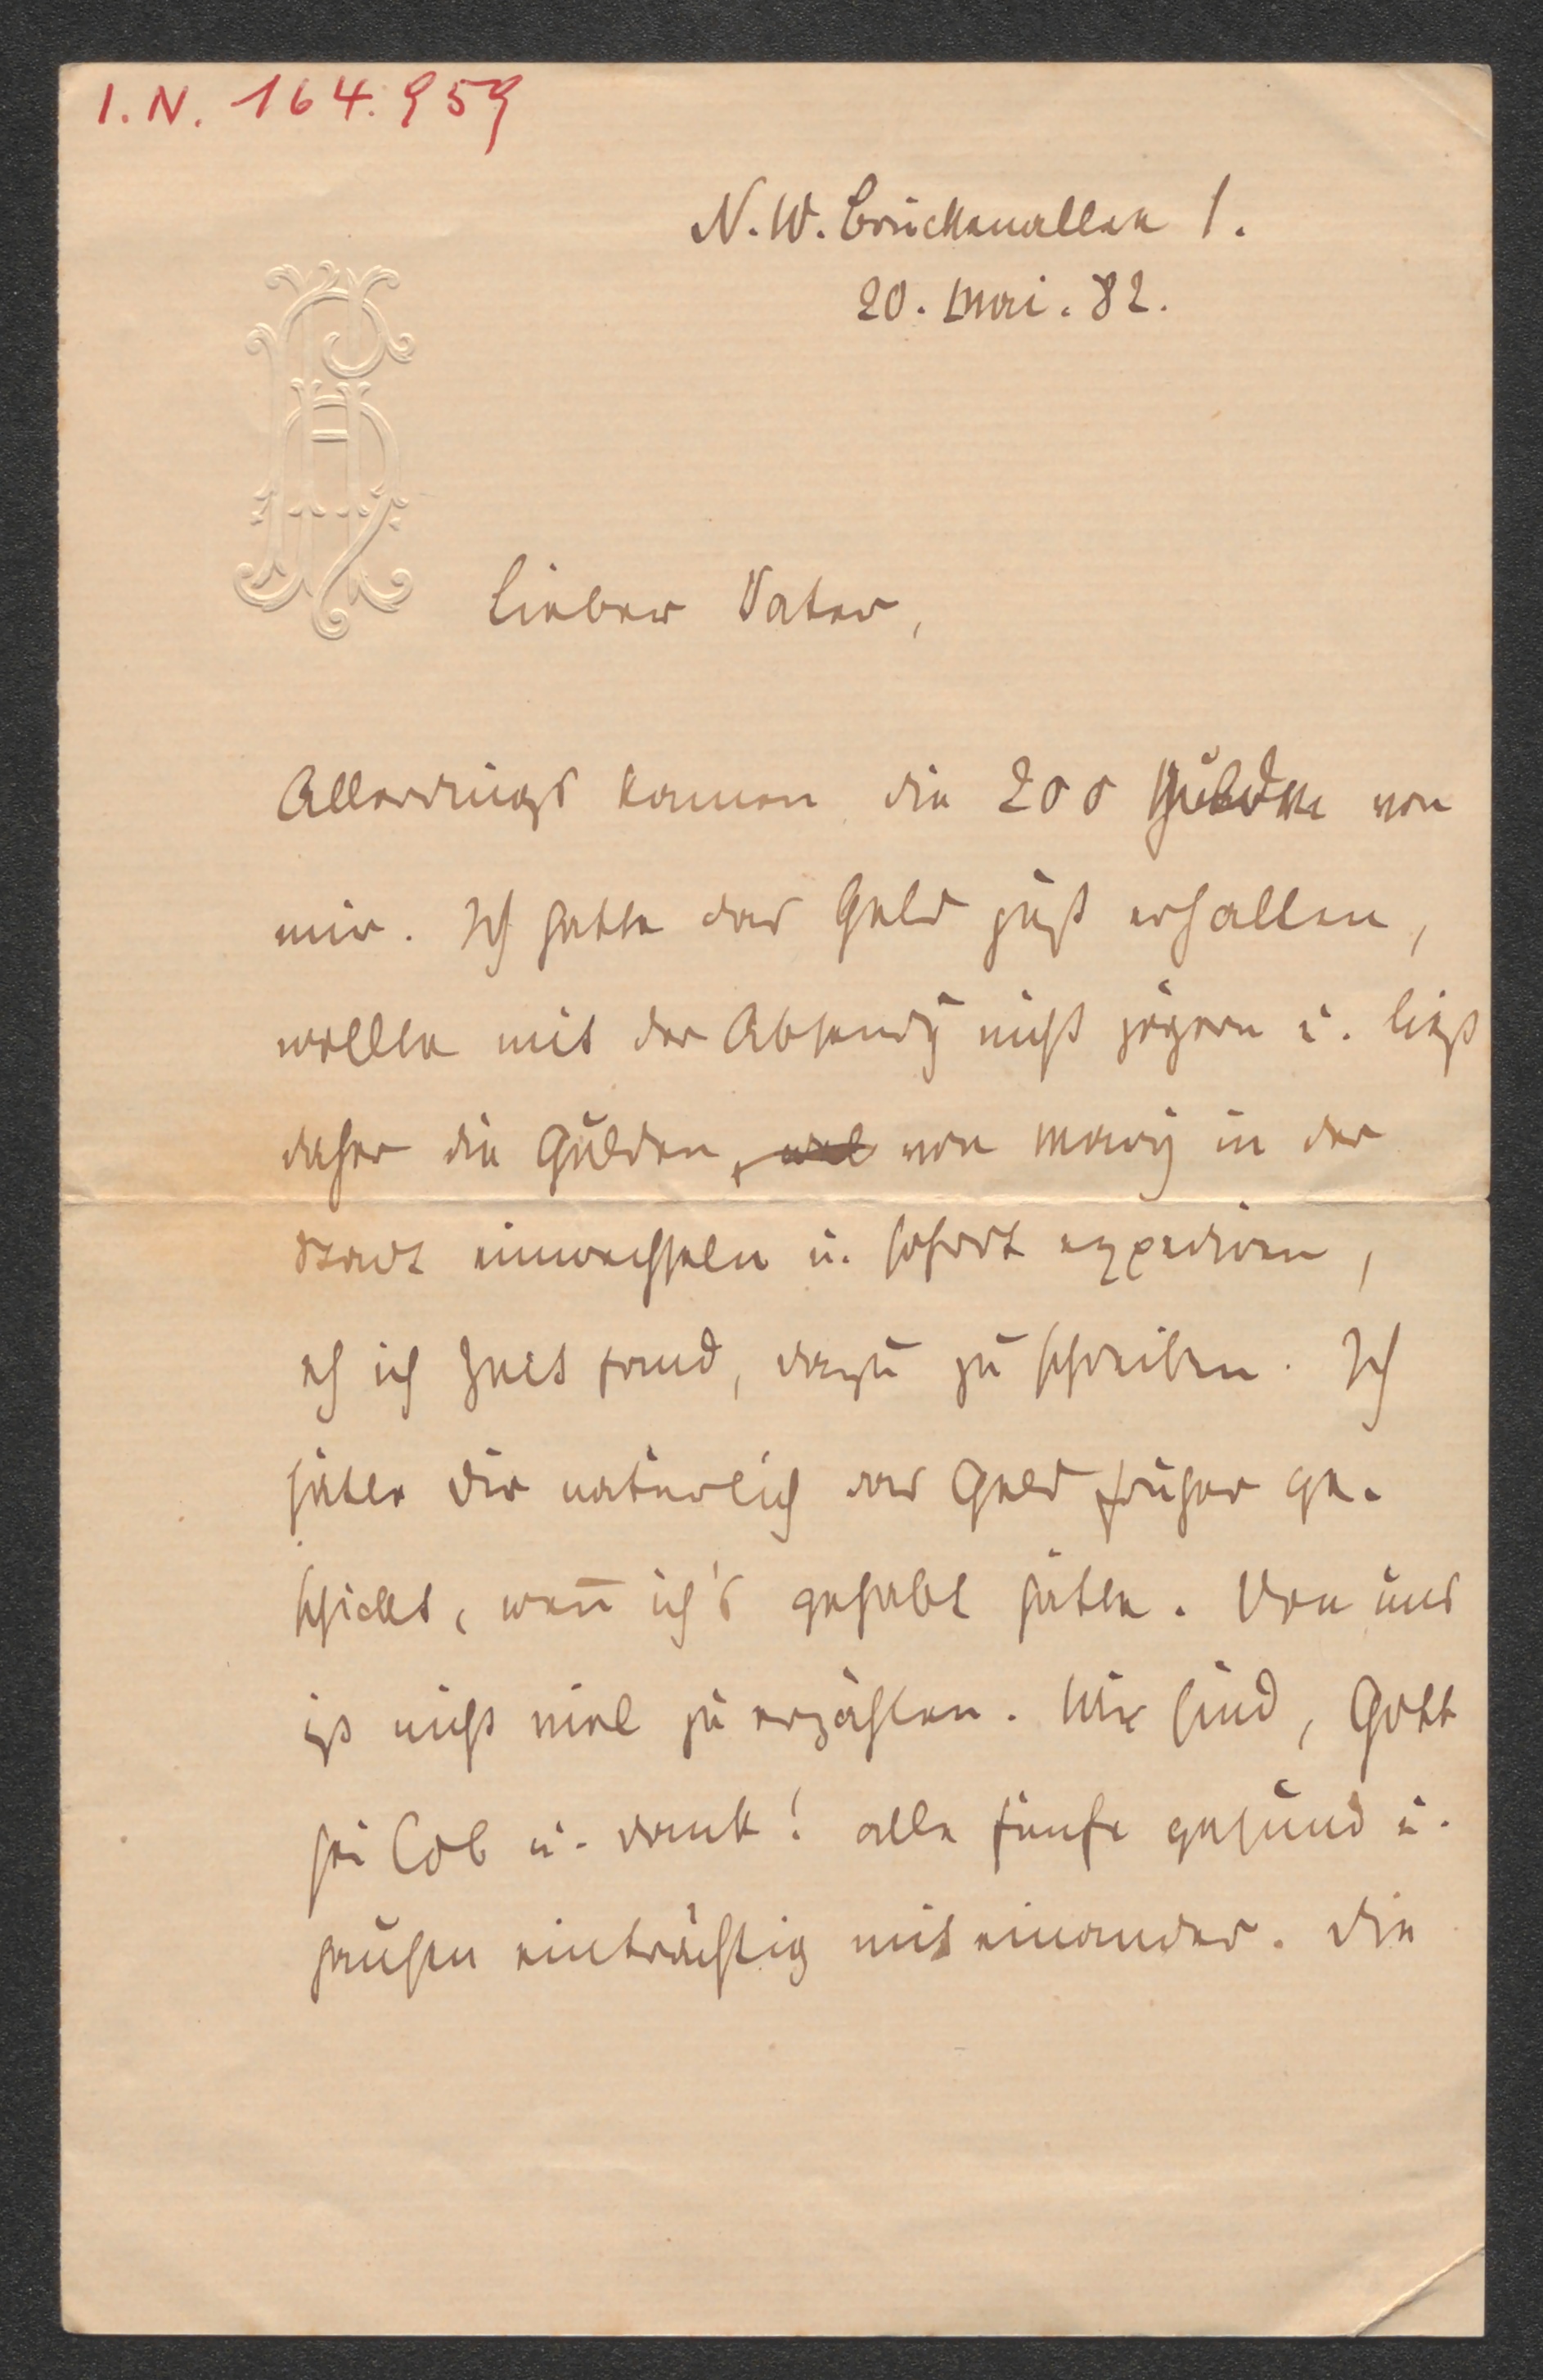 I.N. 164.959
N.W. Brückenallee 1.
20. Mai. 82.
Lieber Vater,
Allerdings kamen die 200 Gulden von
mir. Ich hatte das Geld just erhalten,
wollte mit der Absendg nicht zögern u. ließ
daher die Gulden, von Mary in der
Stadt einwechseln u. sofort expediren,
eh ich Zeit fand, dazu zu schreiben. Ich
hätte Dir natürlich das Geld früher ge-
schickt, wenn̄ ich's gehabt hätte. Von uns
ist nicht viel zu erzählen. Wir sind, Gott
sei Lob u. Dank! alle fünfe gesund u.
hausen einträchtig mit einander. Die